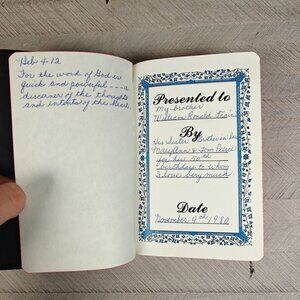 Heb 4-12
For the word of God is
quick and powerful - - - a
discerner of the thoughts
and intents of the heart.
Presented to
My brother
William Ronald
By
His Sister Brother in law
Maryann & Tom
for his 50th
birthday to whom
I love very much
Date
November 4th 1980